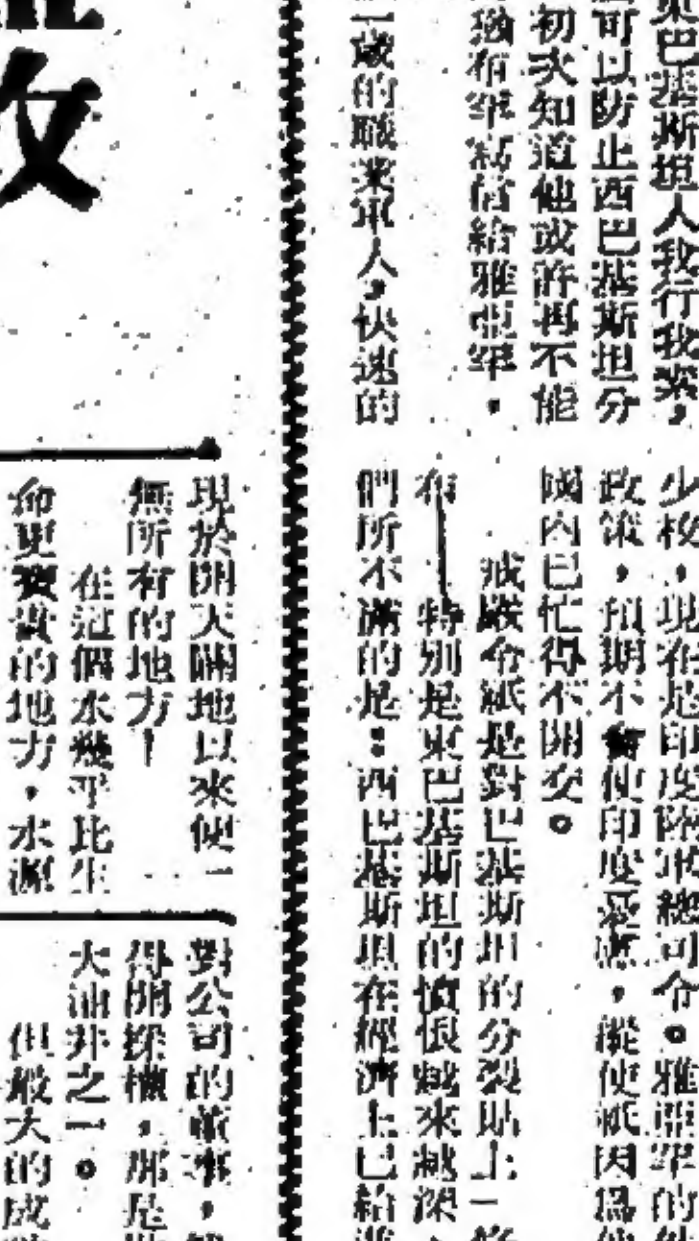 東巴基斯坦人我行我素，
可以防止西巴基斯坦分
初次知道他或許再不能
有罕寫信給雅亞罕，
一歲的職業軍人，快速的
少校，現在是印度陸軍總司令。雅亞罕的
政策，預期不會使印度憂慮，縱使祇因爲他
國內已忙得不開交。
戒嚴令祇是對巴基斯坦的分裂貼上一
布——特別是東巴基斯坦的憤恨越來越深，
們所不滿的是：西巴基斯坦在經濟上已給
敗
現於開天闢地以來便一
無所有的地方！
在這個水幾乎比生
命更寶貴的地方，水源
對公司的董事，
得開探權，那是
大油井之一。
但最大的成